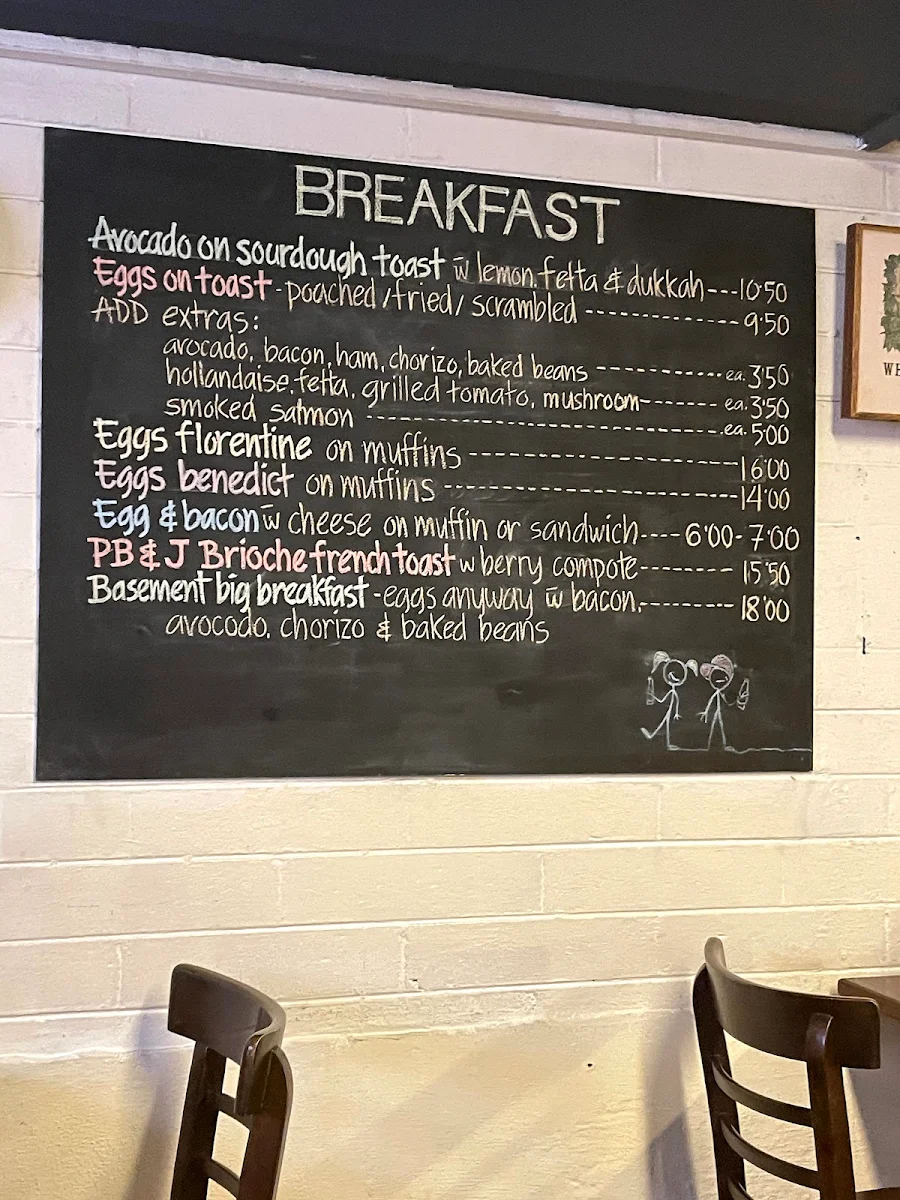 BREAKFAST
Avocado on sourdough toast w̄ lemon, fetta & dukkah---10·50
Eggs on toast - poached /fried/ scrambled -------------9·50
ADD extras:
avocado, bacon, ham, chorizo, baked beans ----------ea. 3·50
hollandaise, fetta, grilled tomato, mushroom------- ea. 3·50
smoked salmon ----------------------------ea. 5·00
Eggs florentine on muffins ---------------------16·00
Eggs benedict on muffins -----------------------14·00
Egg & bacon w̄ cheese on muffin or sandwich----6·00-7·00
PB & J Brioche french toast w berry compote-------15·50
Basement big breakfast - eggs anyway w̄ bacon,-------18·00
avocodo, chorizo & baked beans
WE